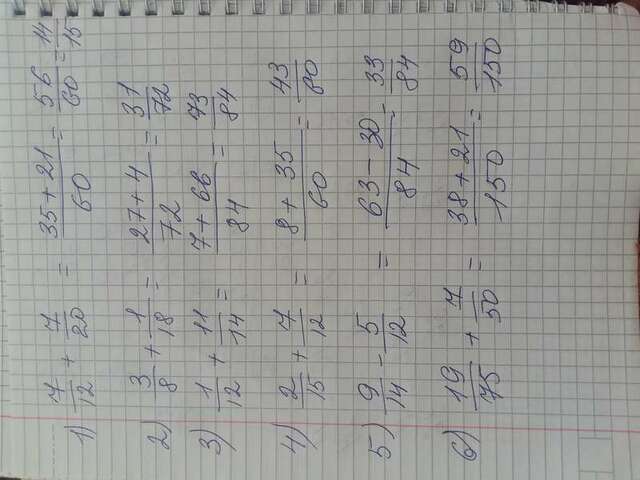 1) 7/12 + 7/20 = (35 + 21)/60 = 56/60 = 14/15
2) 3/8 + 1/18 = (27 + 4)/72 = 31/72
3) 1/12 + 11/14 = (7 + 66)/84 = 73/84
4) 2/15 + 7/12 = (8 + 35)/60 = 43/60
5) 9/14 - 5/12 = (63 - 30)/84 - 33/84
6) 19/75 + 7/50 = (38 + 21)/150 = 59/150